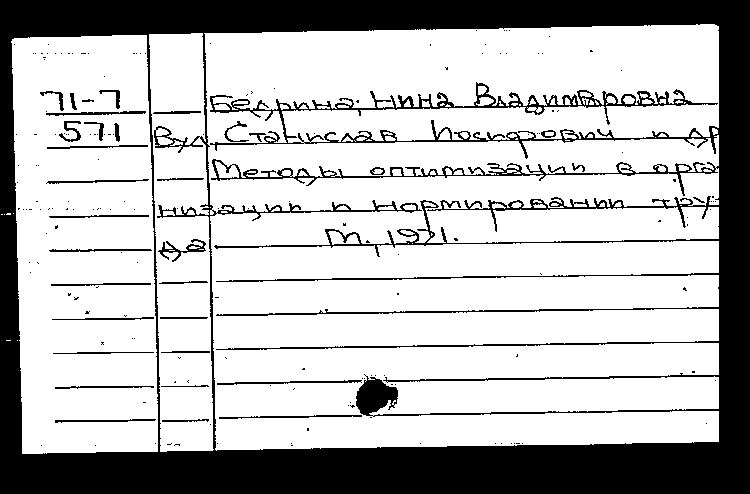 71-7 Бедрина, Нина Владимировна
571 Вул, Станислав Иосифович и др
Методы оптимизации в орга-
низации и нормировании тру-
да М., 1971.